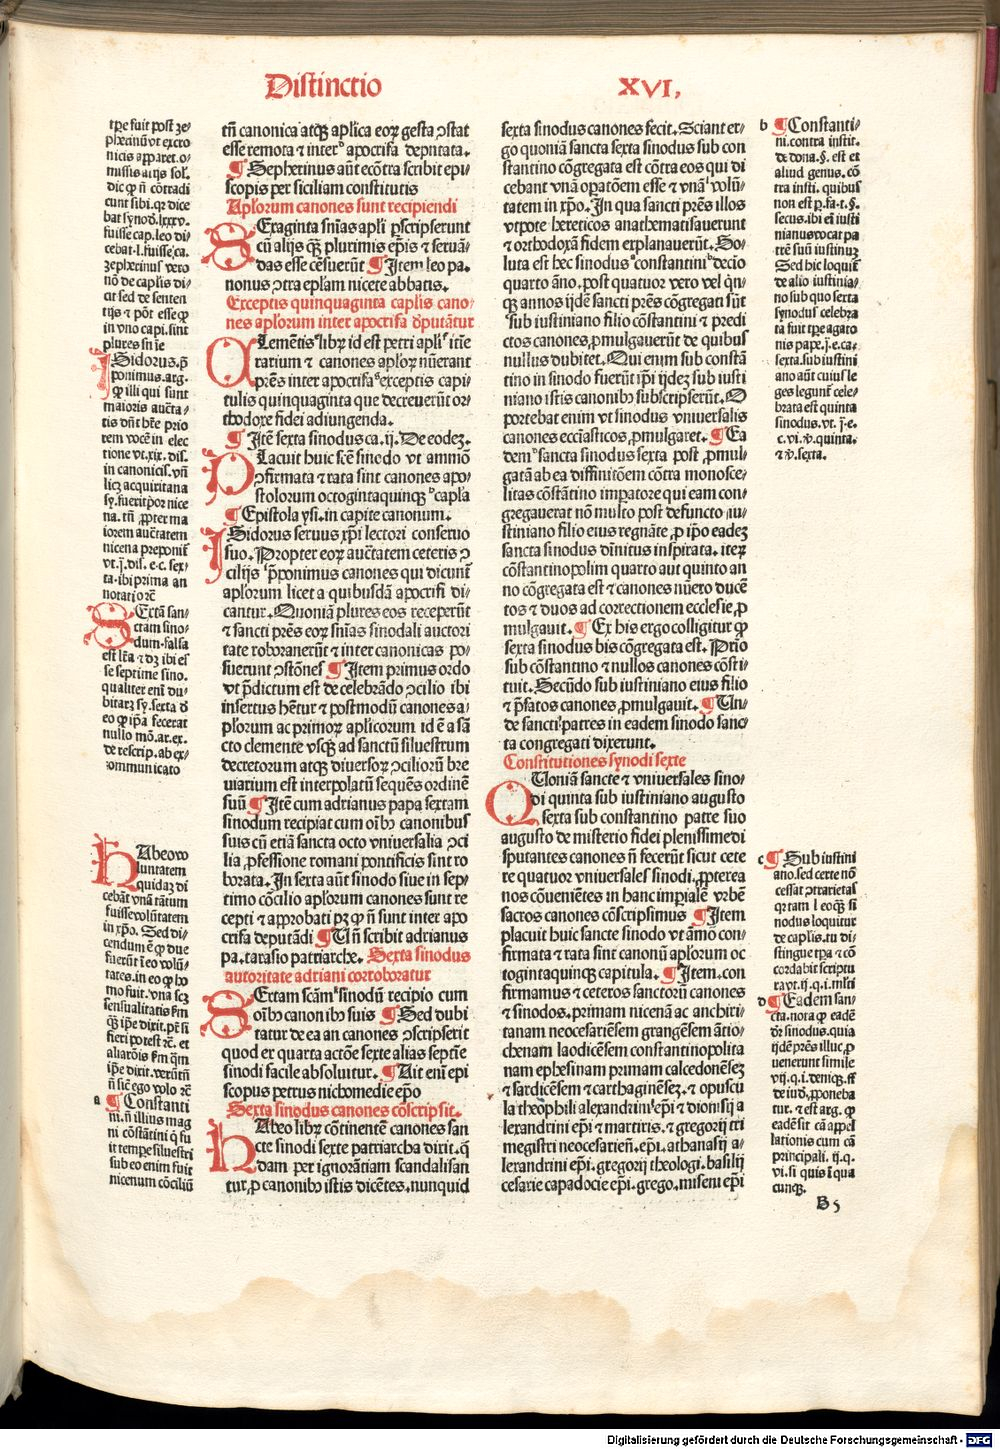 Distinctio XVI,
tꝑe fuit post ze-
pherinũ vt ex cro
nicis apparet. o-
missis aliis sol.
dic ꝙ ñ cõtradi
cunt sibi. qꝛ dice
bat synod. lxxxv.
fuisse cap. leo di-
cebat. l. fuisse ca.
zepherinus vero
nõ de caplis di-
cit sed de senten
tijs ⁊ põt esse ꝙ
in vno capi. sint
plures sn̄ie
ISidorus. p̄
ponimus. arg.
ꝙ illi qui sunt
maioris aucta-
tis dn̄t hr̄e prio
rem vocē in elec
tione vt. xix. dis.
in canonicis. vn̄
licꝫ acquiritana
sy. fuerit p̱or nice
na. tn̄ ꝓpter ma
iorem auctatem
nicena preponit̄
vt. j. dis. e. c. sex-
ta. ibi prima an
notatio rē
SExtā san-
ctam sino-
dum. falsa
est lr̄a ⁊ dꝫ ibi es
se septime sino.
qualiter eni du-
bitarꝫ sy. sexta d̄
eo ꝙ ip̄a fecerat
nullo mō. ar. ex.
de rescrip. ab ex-
ommunicato
HAbeo vo
luntatem
quidaꝫ di
cebãt vnã tãtum
fuisse volũtatem
in xp̄o. Sed di-
cendum ē ꝙ due
fuerũt ī eo volũ-
tates. in eo ꝙ ho
mo fuit. vna scꝫ
sensualitatis ẜm
qꝫ ip̄e dixit. pr̄ si
fieri potest rē. et
alia rõis ẜm quã
ip̄e dixit. verũtñ
ñ sic ego volo rē
a ¶ Constanti
ni. ñ illius mag
ni cõstãtini q̇ fu
it tempe siluestri
sub eo enim fuit
nicenum cõciliũ
tn̄ canonica atqꝫ aplica eoꝝ gesta ↄstat
esse remota ⁊ inter apocrifa deputata.
¶ Sepherinus aũt ecõtra scribit epi-
scopis per siciliam constitutis
Aplorum canones sunt recipiendi
SExaginta sn̄ias apli p̄scripserunt
cũ alijs qꝫ plurimis ep̄is ⁊ seruã-
das esse cēsuerũt ¶ Item leo pa.
nonus ↄtra eplam nicete abbatis.
Exceptis quinquaginta caplis cano-
nes aplorum inter apocrifa dputãtur
CLementis libꝝ id est petri apli itñe
rarium ⁊ canones aploꝝ nũerant
pr̄es inter apocrifa exceptis capi-
tulis quinquaginta que decreuerũt or-
thodoxe fidei adiungenda.
¶ Itē sexta sinodus ca. ij. De eodeꝫ.
PLacuit huic scē sinodo vt ammõ
ↄfirmata ⁊ rata sint canones apo-
stolorum octogintaquinqꝫ capla
¶ Epistola ysi. in capite canonum.
ISidorus seruus xp̄i lectori conseruo
suo. Propter eoꝝ auctatem ceteris ↄ
cilijs p̄ponimus canones qui dicunt̄
aplorum licet a quibusdã apocrifi di-
cantur. Quoniã plures eos receperũt
⁊ sancti pr̄es eoꝝ sn̄ias sinodali auctori
tate roborauerũt ⁊ inter canonicas po-
suerunt ↄstõnes ¶ Item primus ordo
vt p̄dictum est de celebrãdo ↄcilio ibi
insertus hētur ⁊ postmodũ canones a-
plorum ac primoꝝ aplicorum id ē a sã
cto clemente vsqꝫ ad sanctũ siluestrum
decretorum atqꝫ diuersoꝝ ↄciliorũ bre
uiarium est interpolatũ sequēs ordinē
suũ ¶ Itē cum adrianus papa sextam
sinodum recipiat cum oībꝫ canonibus
suis cũ etiã sancta octo vniuersalia ↄci
lia ꝓfessione romani pontificis sint ro
borata. In sexta aũt sinodo siue in sep-
timo cõcilio aplorum canones sunt re
cepti ⁊ approbati pꝫ ꝙ ñ sunt inter apo
crifa deputãdi ¶ Vñ scribit adrianus
pa. tarasio patriarche. Sexta sinodus
autoritate adriani corroboratur
SExtam scãm sinodũ recipio cum
oībꝫ canonibꝫ suis ¶ Sed dubi
tatur de ea an canones ↄscripserit
quod ex quarta actõe sexte alias septīe
sinodi facile absoluitur. ¶ Ait eni epi
scopus petrus nichomedie ep̄o
Sexta sinodus canones cõscripsit.
HAbeo libꝝ cõtinentē canones san
cte sinodi sexte patriarcha dixit. q̄
dam per ignorãtiam scandalisan
tur ꝓ canonibꝫ istis dicētes. nunquid
sexta sinodus canones fecit. Sciant er-
go quoniã sancta sexta sinodus sub con
stantino cõgregata est cõtra eos qui di
cebant vnã opatõem esse ⁊ vnã volũ-
tatem in xp̄o. In qua sancti pr̄es illos
vtpote hereticos anathematisauerunt
⁊ orthodoxã fidem explanauerũt. So-
luta est hec sinodus constantini decio
quarto ãno. post quatuor vero vel q̇n-
qꝫ annos ijdē sancti pr̄es cõgregati sũt
sub iustiniano filio cõstantini ⁊ predi
ctos canones ꝓmulgauerũt de quibus
nullus dubitet. Qui enim sub constã
tino in sinodo fuerũt ip̄i ijdeꝫ sub iusti
niano istis canonibꝫ subscripserũt. O
portebat enim vt sinodus vniuersalis
canones ecclasticos ꝓmulgaret. ¶ Ea
dem sancta sinodus sexta post ꝓmul-
gatã ab ea diffinitõem cõtra monosce-
litas cõstãtino imperatore qui eam con-
gregauerat nõ multo post defuncto iu-
stiniano filio eius regnãte ꝓ ip̄o eadeꝫ
sancta sinodus diuinitus inspirata. iteꝝ
cõstantinopolim quarto aut quinto an
no cõgregata est ⁊ canones nũero ducē
tos ⁊ duos ad correctionem ecclesie ꝓ
mulgauit. ¶ Ex his ergo colligitur ꝙ
sexta sinodus bis cõgregata est. Prīo
sub cõstantino ⁊ nullos canones cõsti-
tuit. Secũdo sub iustiniano eius filio
⁊ p̄fatos canones ꝓmulgauit. ¶ Vn-
de sancti patres in eadem sinodo sanc-
ta congregati dixerunt.
Constitutiones synodi sexte
QUoniã sancte ⁊ vniuersales sino-
di quinta sub iustiniano augusto
sexta sub constantino patre suo
augusto de misterio fidei plenissime di
sputantes canones ñ fecerũt sicut cete
re quatuor vniuersales sinodi. ꝓpterea
nos cõuenietes in hanc imperialē vrbē
sacros canones cõscripsimus ¶ Item
placuit huic sancte sinodo vt ãmõ con-
firmata ⁊ rata sint canonũ aplorum oc
togintaquinqꝫ capitula. ¶ Item. con
firmamus ⁊ ceteros sanctorũ canones
⁊ sinodos. primam nicenã ac anchiri-
tanam neocesariēsem grangēsem ãtio-
chenam laodicēsem constantinopolita
nam ephesinam primam calcedonēseꝫ
⁊ sardicēsem ⁊ carthaginēseꝫ. ⁊ opuscu
la theophili alexandrini ep̄i ⁊ dionisij a
lexandrini ep̄i ⁊ martiris. ⁊ gregorij tri
megistri neocesarieñ. ep̄i. athanasij a-
lexandrini ep̄i. gregorij theologi. basilij
cesarie capadocie ep̄i. grego. miseni ep̄i
b ¶ Constanti-
ni. contra instit.
de dona. §. est et
aliud genus. cõ
tra insti. quibus
non est ꝑ. fa. t. §.
secus. ibi eī iusti
nianus vocat pa
trē suũ iustinuꝫ
Sed hic loquit̄
de alio iustinia-
no sub quo sexta
synodus celebra
ta fuit tꝑe agato
nis pape. j. e. ca.
sexta. sub iustini
ano aũt cuius le
ges legunt̄ cele-
brata est quinta
sinodus. vt. j. e.
c. vi. ℣. quinta.
⁊ ℣. sexta.
c ¶ Sub iustini
ano. sed certe nõ
cessat ↄtrarietas
qꝛ tam l eoqꝫ si
nodus loquitur
de caplis. tu di-
stingue tꝑa ⁊ cõ
cordabit scriptu
ra vt. ij. q. i. insti
d ¶ Eadem san-
cta. nota ꝙ eadē
dr̄ sinodus. quia
ijdē pr̄es illuc ꝓ
uenerunt simile
vij. q. i. deniqꝫ. ff
de iud. ꝓponeba
tur. ⁊ est arg. ꝙ
eadē sit cã appel
lationis cum cã
principali. ij. q.
vi. si quis ī qua
cunqꝫ.
B 5
Digitalisierung gefördert durch die Deutsche Forschungsgemeinschaft - DFG